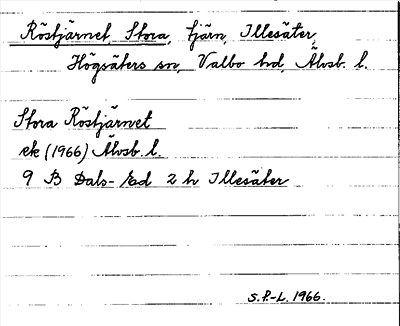 Röstjärnet, Stora, tjärn, Illesäter,
Högsäters sn, Valbo hd, Älvsb. l.
Stora Röstjärnet
ek (1966) Älvsb. l.
9 B Dals-Ed 2 h Illesäter
S.F.-L. 1966.